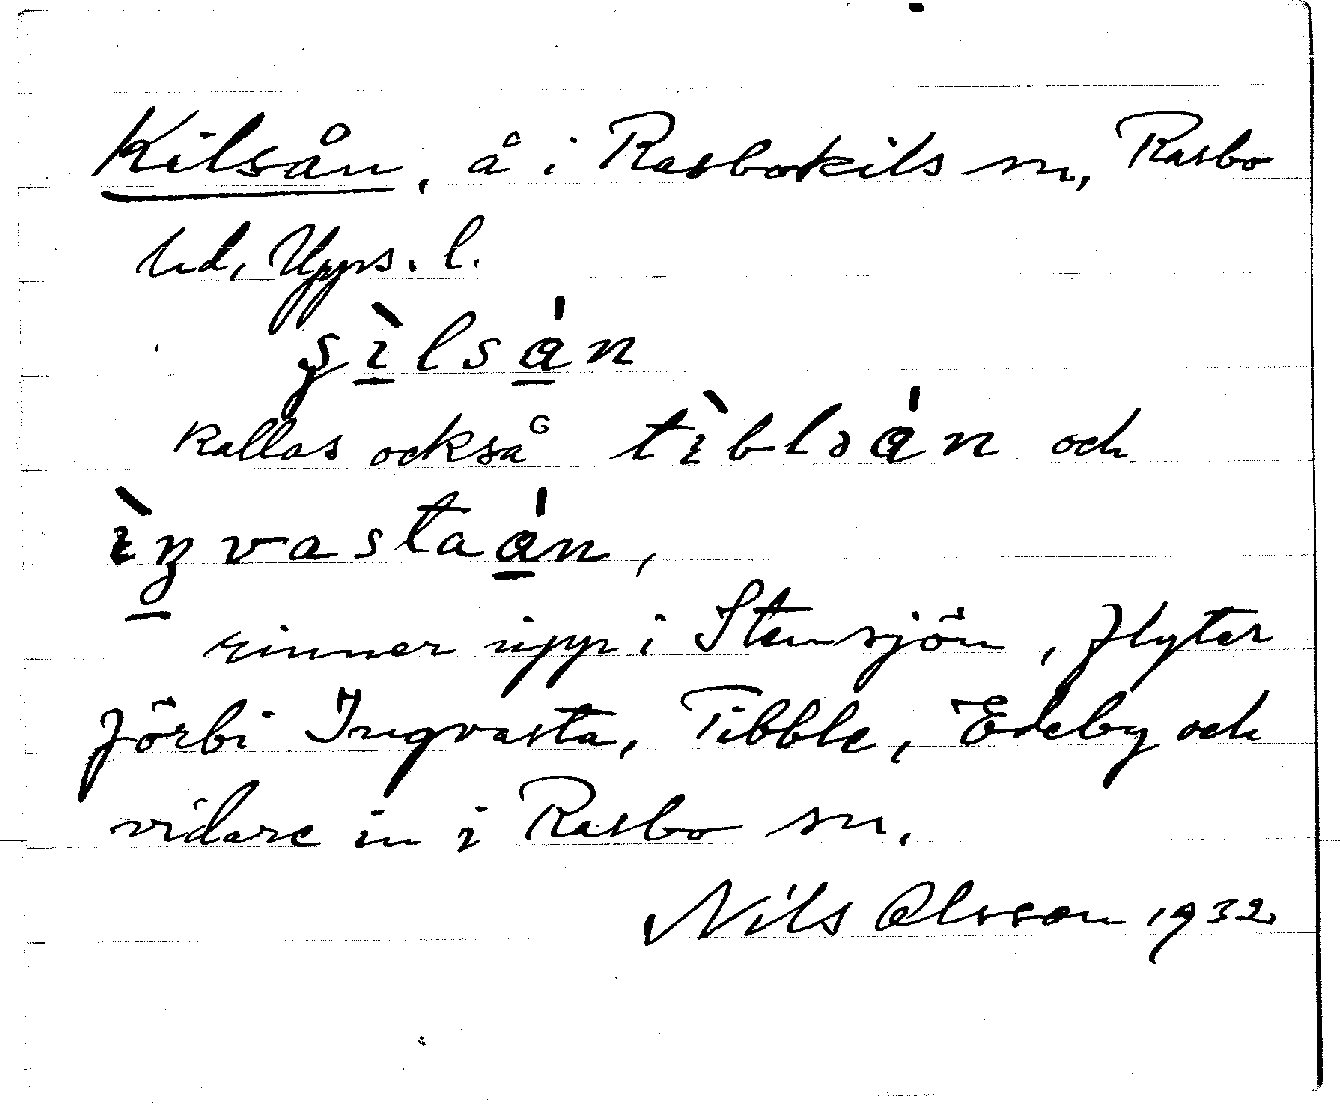 Kilsån, å i Rasbokils sn, Rasbo
hd, Upps. l.
ʂìlsán
kallas också tìblsán och
ìŋvastaán,
rinner upp i Stensjön, flyter
förbi Ingvasta, Tibble, Edeby och
vidare in i Rasbo sn.
Nils Olsson 1932